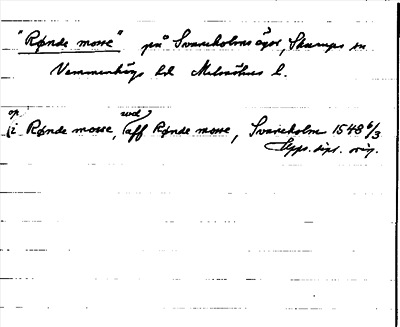 "Rønde mosse" på Svaneholms ägor, Skurups sn
Vemmenhögs hd Malmöhus l.
op
/i Rønde mosse, (aff Rønde mosse, Svaneholm 1548 6/3
Upps. dipl. orig.